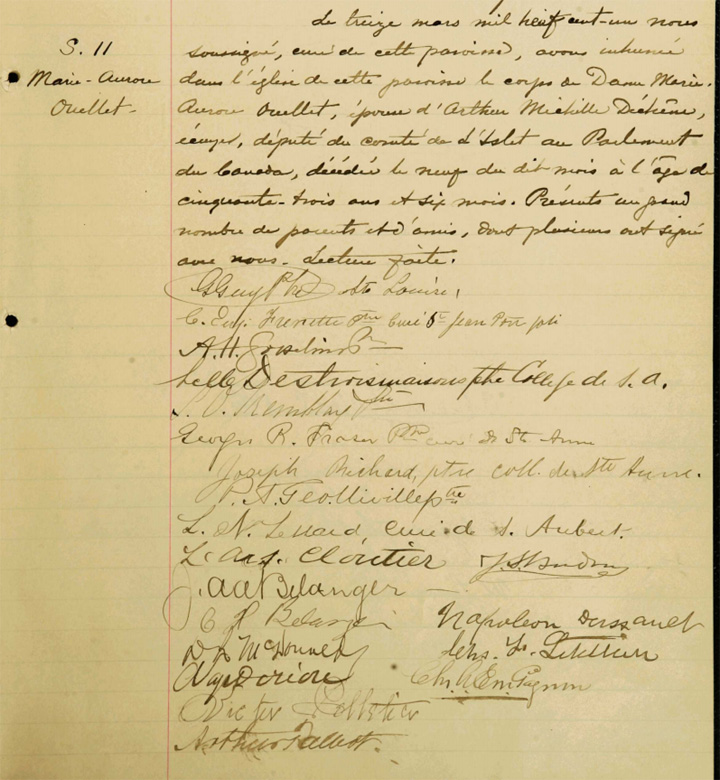 S. 11
Marie-Aurore
Ouellet-
Le treize mars mil neuf cent-un nous
soussigné, curé de cette paroisse, avons inhumé
dans l'église de cette paroisse le corps de Dame Marie-
Aurore Ouellet, épouse d'Arthur Miville Dechêne,
écuyer, député du comté de L'Islet au Parlement
du Canada, décédée le neuf du dit mois à l'âge de
cinquante-trois ans et six mois. Présents un grand
nombre de parents et d'amis, dont plusieurs ont signé
avec nous. Lecture faite.
Ste Louise,
Frenette Ptre Curé St Jean Port Joli
A. H. Gosselin Ptre
Destroismaisons ptre College de S. A.
Tremblay Ptre
Georges R. Fraser Ptre curé de Ste Anne
Joseph Richard, ptre coll. de Ste Anne.
ptre
L. N. curé de S. Aubert.
Cloutier
Belanger
Napoleon Dussault
Letellier
Victor Pelletier
Arthur Talbot.